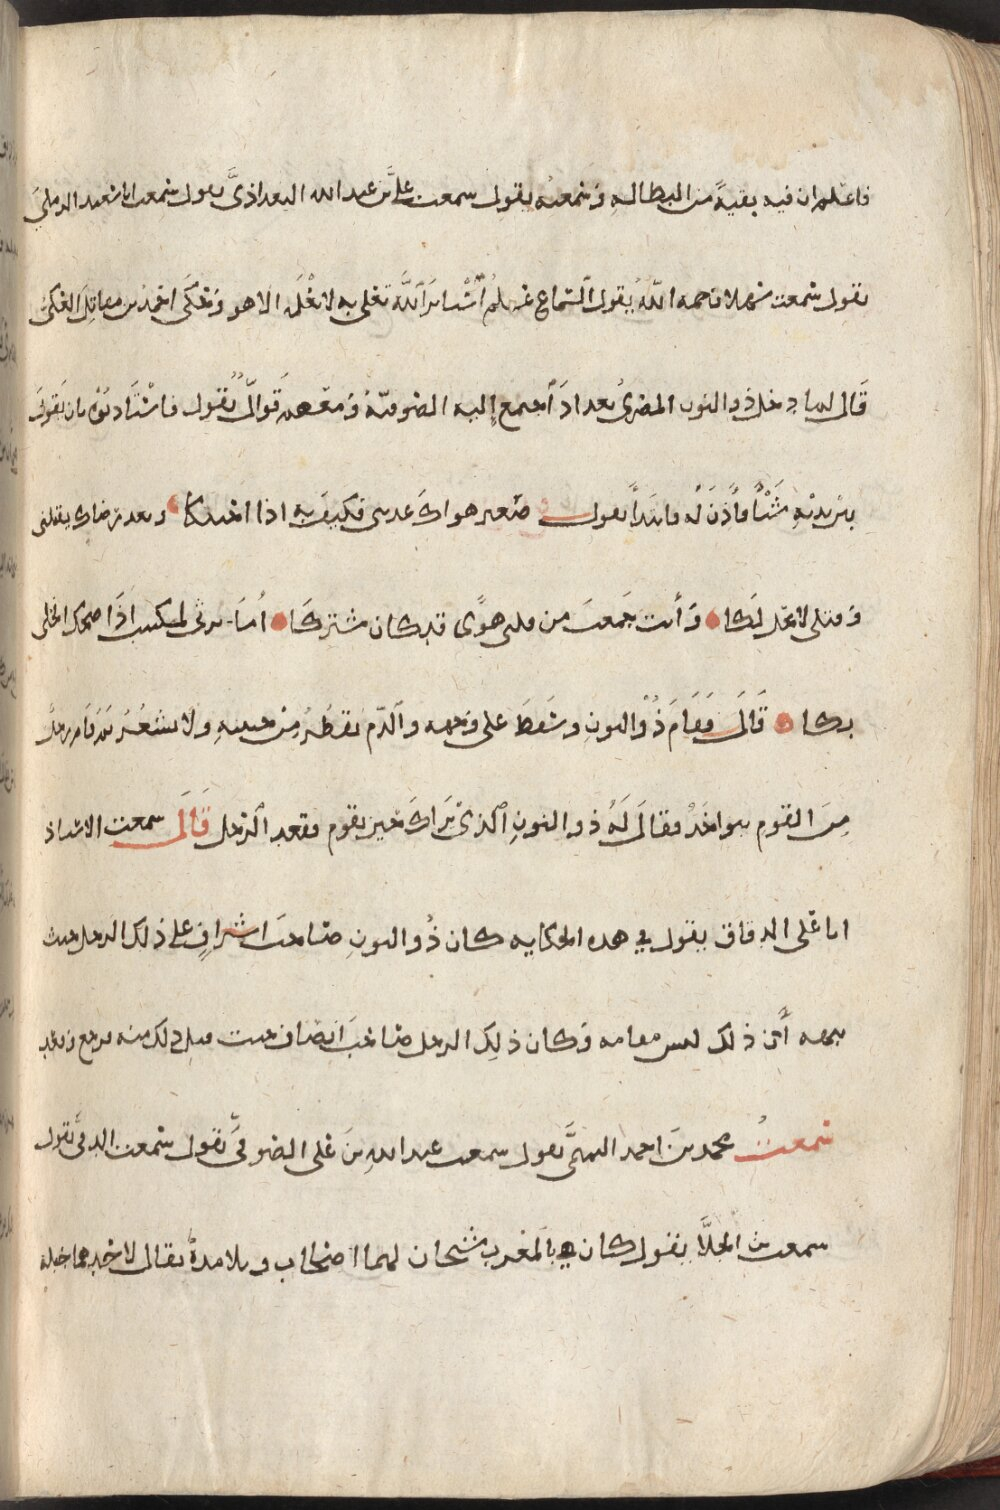 فاعلم ان فيه بقية من البطالة وسمعته يقول سمعت علي بن عبد الله البغدادي يقول سمعت ابا سعيد الرملي
يقول سمعت سهلا رحمه الله يقول السماع علم استاثر الله تعلى به لا يعلمه الا هو وحكى احمد بن مقاتل العكي
قال لما دخل ذو النون المصري بغداد اجتمع إليه الصوفية ومعهم قوال يقول فاستاذنوه بان يقول
بين يديه شيأ فأذن له فابتدأ يقول صغير هواك عذبني فكيف به اذا احتنكا
وأنت جمعت من قلبي هوًى قد كان مشتركا أما ترثي لمكتئب اذا ضحك الخلي
بكا قال فقام ذو النون وسقط على وجهه والدم يقطر من جبينه ولا يشعر ثم قام رجل
من القوم يتواجد فقال له ذو النون الذي يراك حين تقوم فقعد الرجل قال سمعت الاستاذ
ابا علي الدقاق يقول في هذه الحكايه كان ذو النون صاحب اشراف على ذلك الرجل حيث
نبهه أن ذلك ليس مقامه وكان ذلك الرجل صاحب انصاف حيث قبل ذلك منه فرجع وقعد
سمعت محمد بن احمد التميمي يقول سمعت عبد الله بن علي الصوفي يقول سمعت الدقي يقول
سمعت الجلا يقول كان بالمغرب شيخان لهما اصحاب وتلامذة يقال لاحدهما جبلة